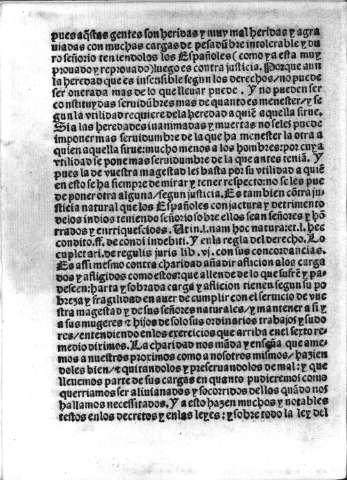 pues aq̃stas gentes son heridas y muy mal heridas y agra
uiadas con muchas cargas de pesadũbre intolerable y du
ro señorio teniendolos los Españoles (como ya esta muy
prouado y reprouado) luego es contra justicia. Porque aun
la heredad que es insensible segun los derechos / no puede
ser onerada mas de lo que lleuar puede. Y no pueden ser
constituydas seruidũbres mas de quanto es menester / y se
gun la vtilidad requiere de la heredad a quiẽ aquella sirue.
Si a las heredades inanimadas y muertas no se les puede
imponer mas seruidumbre de la que ha menester la otra a
quien aquella sirue: mucho menos a los hombres: por cuya
vtilidad se pone mas seruidumbre de la que antes teniã. Y
pues la de vuestra magestad les basta por su vtilidad a quiẽ
en esto se ha siempre de mirar y tener respecto: no se les pue
de poner otra alguna / segun justicia. Es tambien cõtra ju
sticia natural que los Españoles con jactura y detrimento
de los indios teniendo señorio sobre ellos sean señores y hõ
rrados y enrriquescidos. Ut in .l. nam hoc natura: et .l. hec
condito. ff. de condi indebiti. Y en la regla del derecho. Lo
cupletari. de regulis juris lib. vj. con sus concordancias.
Es assi mesmo contra charidad añadir aflicion a los carga
dos y afligidos como estos: que allende de lo que sufrẽ y pa-
descen: harta y sobrada carga y aflicion tienen segun su po
breza y fragilidad en auer de cumplir con el seruicio de vue
stra magestad y de sus señores naturales / y mantener a si y
a sus mugeres ⁊ hijos de solo sus ordinarios trabajos y sudo
res / entendiendo en los exercicios que arriba en el sexto re
medio diximos. La charidad nos mãda y enseña que ame
mos a nuestros proximos como a nosotros mismos / hazien
doles bien / ⁊ quitandolos y preseruandolos de mal: y que
lleuemos parte de sus cargas en quanto pudieremos como
querriamos ser aliuianados y socorridos dellos quãdo nos
hallamos necessitados. Y a esto hazen muchos y notables
testos en los decretos y en las leyes: y sobre todo la ley del